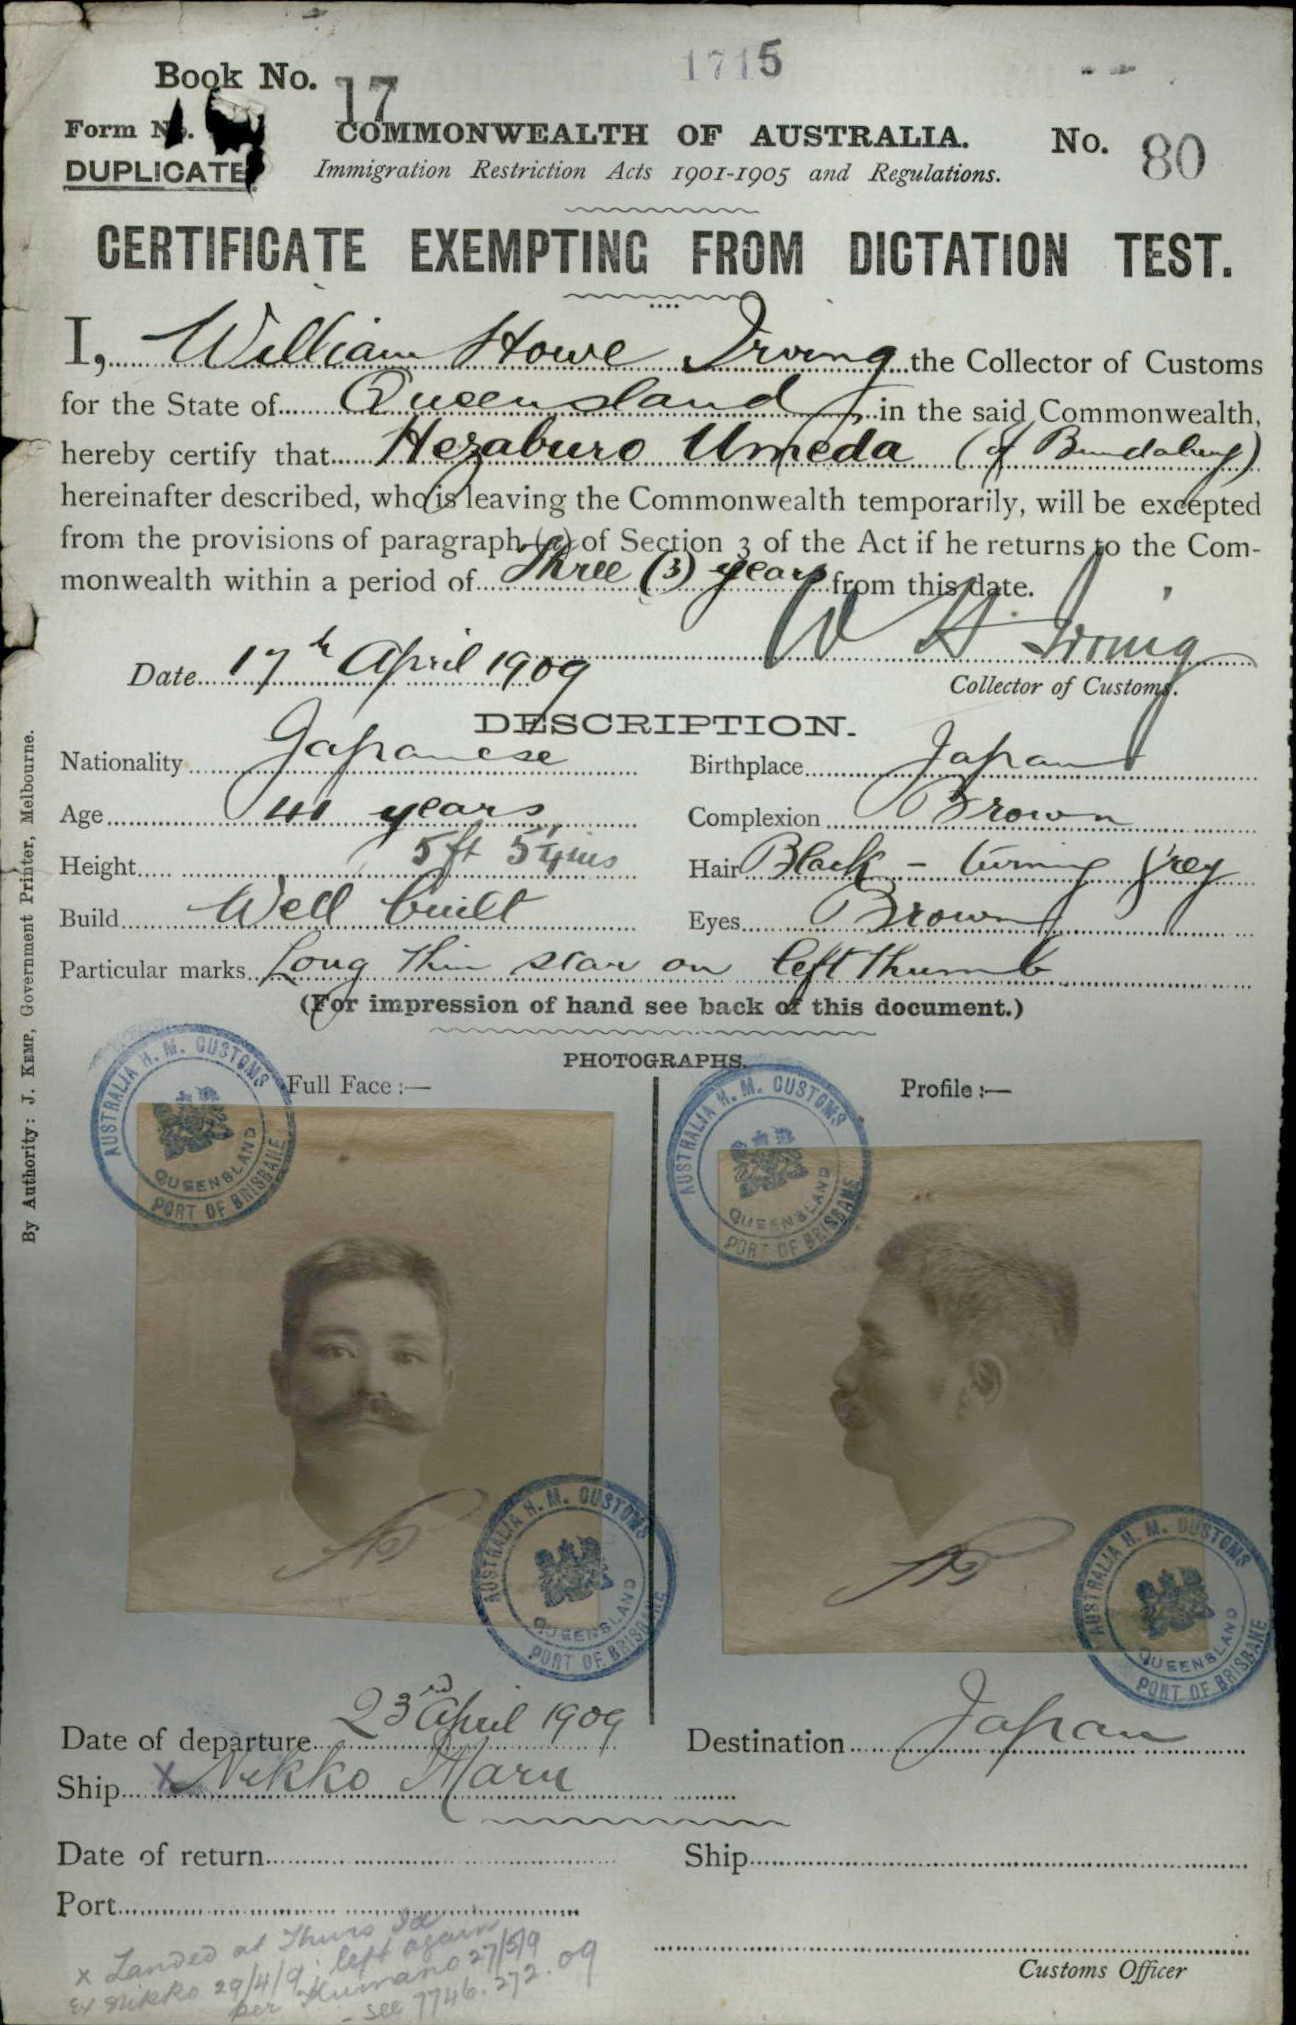 1715
Book No. 17
Form No.
COMMONWEALTH OF AUSTRALIA.
No. 80
DUPLICATE.
Immigration Restriction Acts 1901-1905 and Regulations.
CERTIFICATE EXEMPTING FROM DICTATION TEST.
I, William Howe Irving the Collector of Customs
for the State of Queensland in the said Commonwealth,
hereby certify that Hezaburo Umeda (of Bundaberg)
hereinafter described, who is leaving the Commonwealth temporarily, will be excepted
from the provisions of paragraph (a) of Section 3 of the Act if he returns to the Com-
monwealth within a period of Three (3) years from this date.
W H Irving
Date 17th April 1909
Collector of Customs.
DESCRIPTION.
Nationality Japanese
Birthplace Japan
Age 41 years
Complexion Brown
Height 5ft 5¼ins
Hair Black - turning grey
Build Well built
Eyes Brown
Particular marks Long thin scar on left thumb
(For impression of hand see back of this document.)
PHOTOGRAPHS.
Full Face :—
Profile :—
AUSTRALIA H. M. CUSTOMS
QUEENSLAND
PORT OF BRISBANE
AUSTRALIA H. M. CUSTOMS
QUEENSLAND
PORT OF BRISBANE
AUSTRALIA H. M. CUSTOMS
QUEENSLAND
PORT OF BRISBANE
AUSTRALIA H. M. CUSTOMS
QUEENSLAND
PORT OF BRISBANE
Date of departure 23rd April 1909
Destination Japan
Ship x Nikko Maru
Date of return
Ship
Port
x Landed at Thurs Id
Ex Nikko 29/4/9. left again
per Kumano 27/5/9
- see 7746.272.09
Customs Officer
By Authority: J. KEMP, Government Printer, Melbourne.